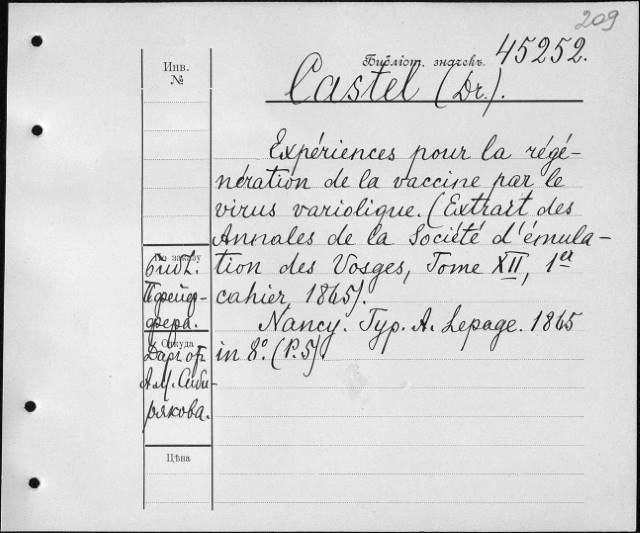 209
Библіот. значекъ. 45252.
Инв.
№
Castel (Dr.).
Expériences pour la régé-
nération de la vaccine par le
virus variolique. (Extrait des
Annales de la Société d'émula-
tion des Vosges, Tome XII, 1er
cahier, 1865).
Nancy. Typ. A. Lepage. 1865
in 8.° (P. 5)
По заказу
библ.
Пфейф-
фера.
Откуда
Даръ отъ
А.М. Сиби-
рякова.
Цѣна